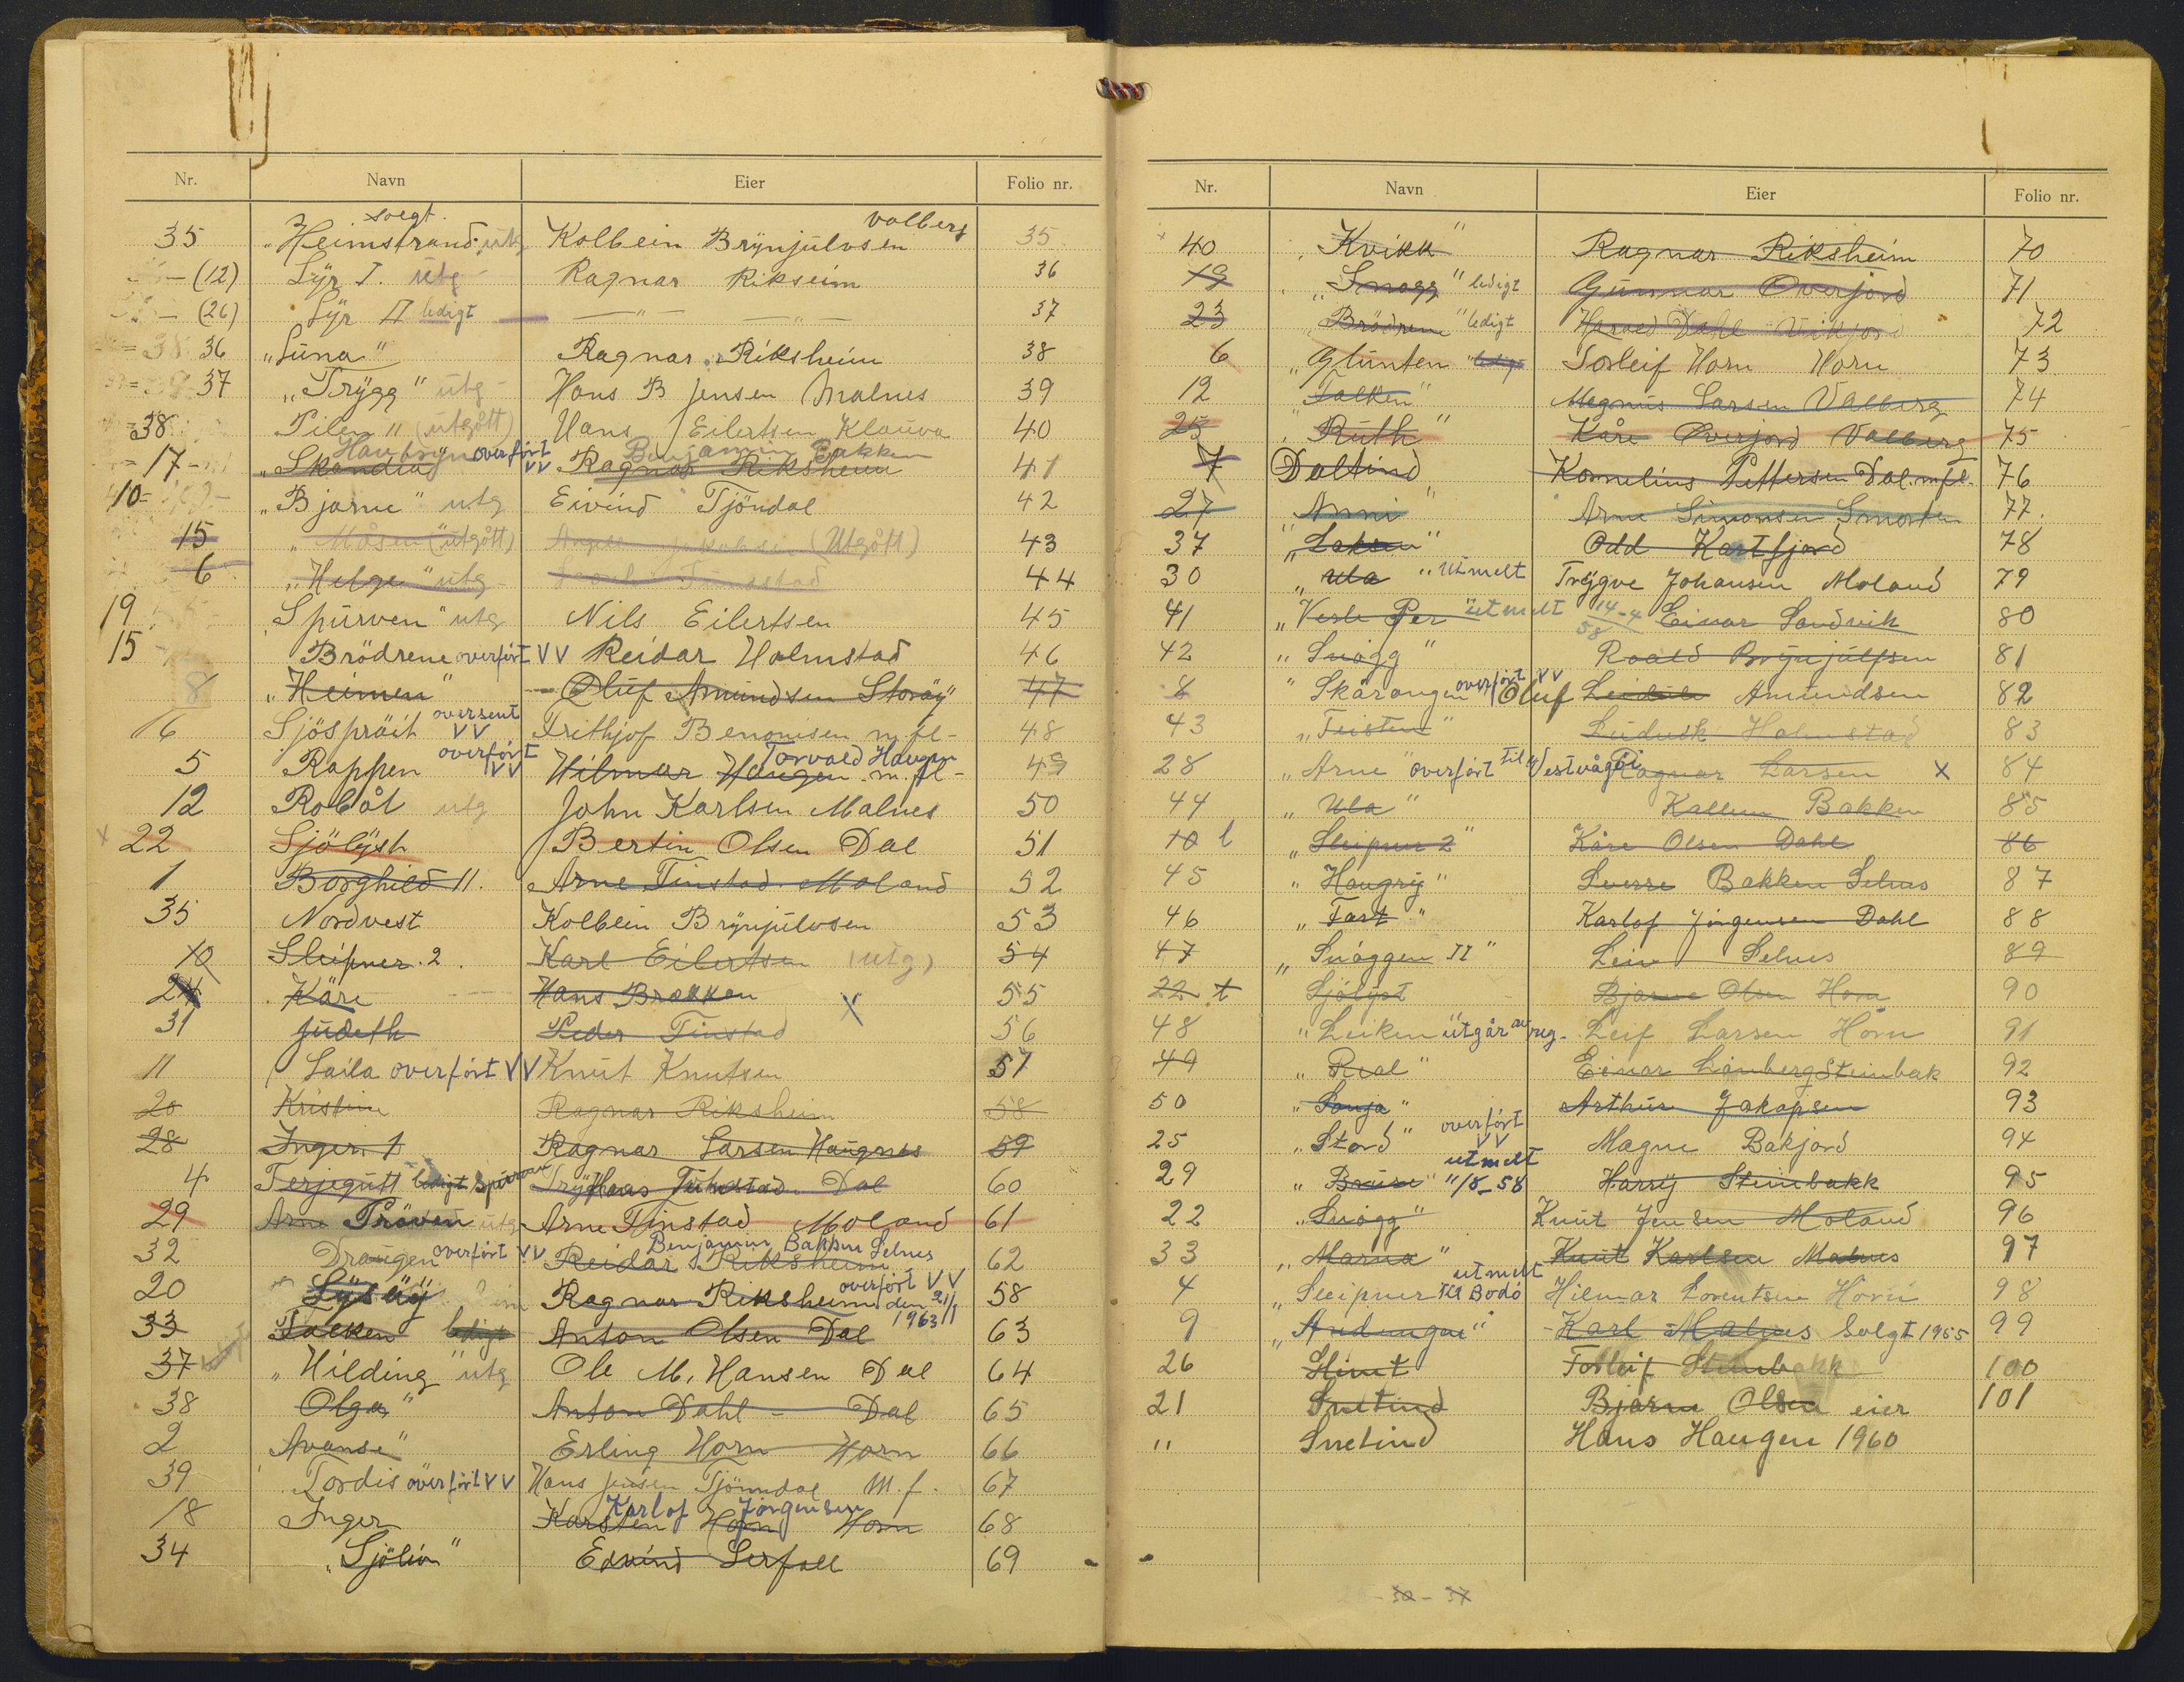 Nr. Navn Eier Folio nr.
solgt. Valberg
35 "Heimstrand utg Kolbein Brynjulvsen 35
(12) Lyr I. utg Ragnar Rikseim 36
(26) Lyr II ledigt — " — — " — 37
36 "Luna" Ragnar Riksheim 38
37 "Trygg" utg - Hans B Jensen Malnes 39
38 Pilen" (utgått) Hans Eilertsen Klauva 40
Haubryn overført VV Benjamin Bakken
17 "Skandia" Ragnar Riksheim 41
10 "Bjarne" utg Eivind Tjöndal 42
15 "Måsen" (utgått) Jakobsen (Utgått) 43
6 "Helge" utg Tinnstad 44
19 Spurven" utg Nils Eilertsen 45
15 Brödrene overført VV Reidar Holmstad 46
8 "Heimen" Oluf Amundsen Storöy 47
16 Sjösprøit oversent VV Frithjof Benonisen m.fl- 48
5 Rappen overført VV Hilmar Haugen m.fl- Torvald Haugen 49
12 Robåt utg John Karlsen Malnes 50
x 22 Sjölyst Bertin Olsen Dal 51
1 Borghild II. Arne Tinstad. Moland 52
35 Nordvest Kolbein Brynjulvsen 53
10 Sleipner. 2. Karl Eilertsen (utg) 54
24 Kåre Hans Brokkan x 55
31 Judeth Peder Tinstad 56
11 Laila overført VV Knut Knutsen 57
20 Kristine Ragnar Riksheim 58
28 Inger 1 Ragnar Larsen Haugnes 59
4 Terjegutt ledigt Spurvan Hans Tinnstad Dal 60
29 Arne Pröven utg Arne Tinstad Moland 61
Benjamin Bakken Selnes
32 Draugen overført VV Reidar Riksheim 62
20 Lysøy Ragnar Riksheim overført VV den 21/1 1963 58
33 Falken ledigt Anton Olsen Dal 63
37 "Hilding" utg Ole M. Hansen Dal 64
38 Olga" Anton Dahl - Dal 65
2 Avanse" Erling Horn Horn 66
39 Tordis overført VV Hans Jensen Tjönndal M.f. 67
Karlof Jörgensen
18 Inger Karsten Horn Horn 68
34 "Sjöliv" Edvind Serfall 69
Nr. Navn Eier Folio nr.
40 "Kvikk" Ragnar Riksheim 70
19 "Snogg" ledigt Gunnar Overjord 71
23 "Brödrene" ledigt Harald Dahl Vikjord 72
6 "Glunten" ledigt Torleif Horn Horn 73
12 "Falken" Magnus Larsen Valberg 74
25 "Ruth" Kåre Overjord Valberg 75
7 Daltind Kornelius Pettersen Dal. m.fl. 76
27 Anni" Arne Simonsen Smorten 77.
37 "Laksen" Odd Kartfjord 78
30 "Ula" utmelt Trygve Johansen Moland 79
41 "Vesle Per" utmelt 14-4 58 Einar Sandvik 80
42 "Snögg" Roald Brynjulfsen 81
8 "Skårungen overført VV Oluf Amundsen 82
43 "Teisten" Ludvik Holmstad 83
28 "Arne" overført til Vestvågöi Ragnar Larsen x 84
44 "Ula" Kallum Bakken 85
10 l "Sleipner 2" Kåre Olsen Dahl 86
45 "Haugrij" Sverre Bakken Selnes 87
46 "Fart" Karlof Jörgensen Dahl 88
47 "Snöggen II" Leiv Selnes 89
22 t Sjölyst Bjarne Olsen Horn 90
48 "Leiken utgår av reg. Leif Larsen Horn 91
49 "Real" Einar Limberg Steinbak 92
50 "Sonja" Arthur Jakopsen 93
25 "Stord" overført VV Magne Bakjord 94
29 "Bruse" utmelt 11/8-58 Harry Steinbakk 95
22 "Snögg" Knut Jensen Moland 96
33 "Marna" Knut Karlsen Malnes 97
4 "Sleipner utmelt til Bodö Hilmar Lorentsen Horn 98
9 "Andungen" Karl Malnes Solgt 1955 99
26 Glimt Torleif Steinbakk 100
21 Snetind Bjarne Olsen eier 101
" Snetind Hans Haugen 1960